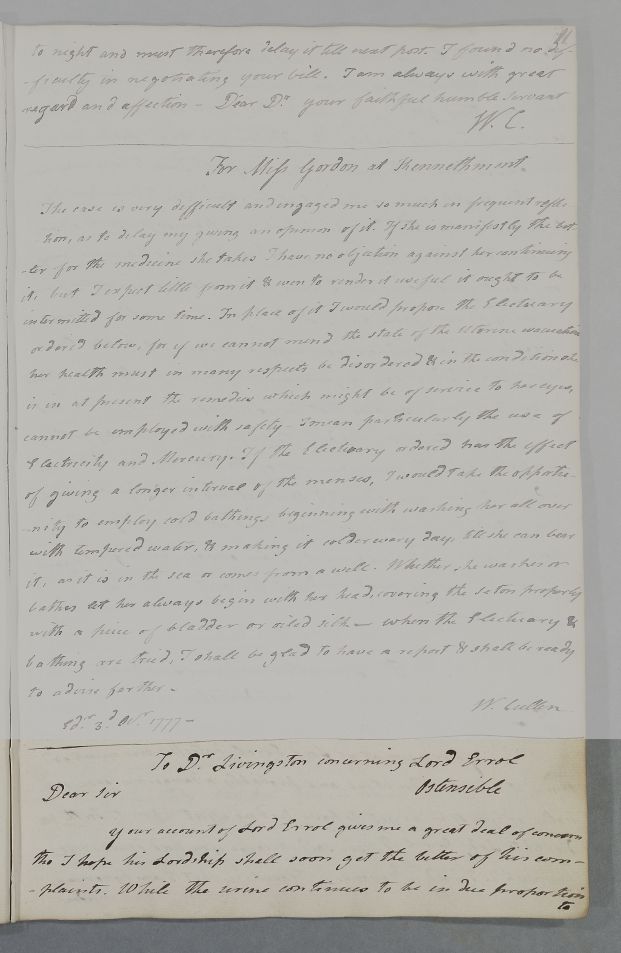 to night and must therefore delay it till next post. I found no dif-
-ficulty in negotiating your bill. I am always with great
regard and affection - Dear Dr. your faithful humble Servant
W. C.
For Miss Gordon at Kennethmont.
The case is very difficult and engaged me so much in frequent reflec
tion, as to delay my giving an opinion of it. If she is manifestly the bet-
-ter for the medicine she takes I have no objection against her continuing
it, but I expect little from it & even to render it useful it ought to be
intermitted for some time. In place of it I would propose the Electuary
ordered below, for if we cannot mend the state of the Uterine evacuation
her health must in many respects be disordered & in the condition she
is in at present the remedies which might be of service to her eyes,
cannot be employed with safety - I mean particularly the use of
Electricity and Mercury. If the Electuary ordered has the effect
of giving a longer interval of the menses, I would take the opportu-
-nity to employ cold bathing, beginning with washing her all over
with tempered water, & making it colder every day, till she can bear
it, as it is in the sea or comes from a well. Whether she washes or
bathes let her always begin with her head, covering the seton properly
with a piece of bladder or oiled silk - when the Electuary &
bathing are tried, I shall be glad to have a report & shall be ready
to advise farther -
W. Cullen
Edr. 3d 1777 -
To Dr Livingston concerning Lord Errol
Ostensible
Dear Sir
your account of Lord Errol gives me a great deal of concern
tho I hope his Lordship shall soon get the better of his com-
-plaints. While the urine continues to be in due proportion
to